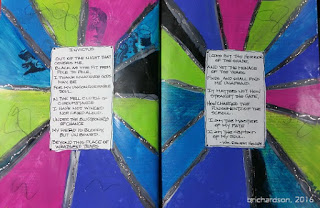 Invictus
Out of the night that
covers me,
Black as the pit from
pole to pole,
I thank whatever gods
may be
For my unconquerable
soul.
In the fell clutch of
circumstance
I have not winced
nor cried aloud.
Under the bludgeonings
of chance
My head is bloody,
but unbowed.
Beyond this place of
tears
Looms but the horror
of the shade,
And yet the menace
of the years
Finds and shall find me
unafraid.
It matters not how
straight the gate,
How charged the
punishments the
scroll.
I am the master
of my fate
I am the captain
of my soul.
Ernest Henley
brichardson, 2016